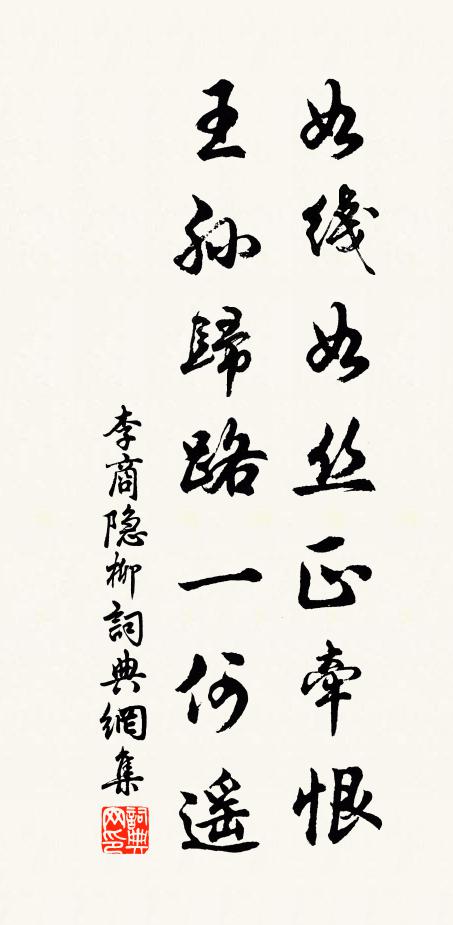 如线如丝正牵恨
王孙歸路一何遥
李商隐柳詞典網集
詞典網印